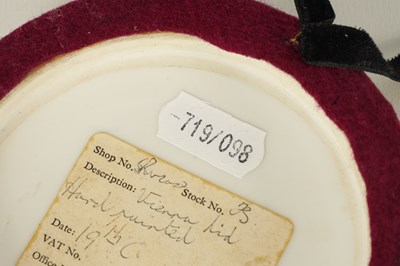 -719/098
Shop No. Stock No. B
Description: Vienna lid
Hand painted
Date: 19th C
VAT No.
Office